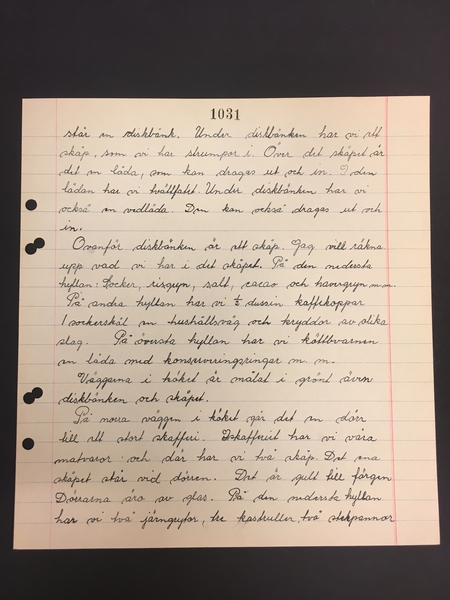 1031
står en diskbänk. Under diskbänken har vi ett
skåp, som vi har strumpor i. Över det skåpet är
det en låda, som kan dragas ut och in. I den
lådan har vi tvättfatet. Under diskbänken har vi
också en vedlåda. Den kan också dragas ut och
in.
Ovanför diskbänken är ett skåp. Jag vill räkna
upp vad vi har i det skåpet. På den nedersta
hyllan: Socker, risgryn, salt, cacao och havregryn m.m.
På andra hyllan har vi ½ dussin kaffekoppar
1 sockerskål en hushållsvåg och kryddor av olika
slag. På översta hyllan har vi köttkvarnen
en låda med konserveringsringar m. m.
Väggarna i köket är målat i grönt även
diskbänken och skåpet.
På norra väggen i köket går det en dörr
till ett stort skafferi. I skafferiet har vi våra
matvaror och där har vi två skåp. Det ena
skåpet står vid dörren. Det är gult till färgen
Dörrarna äro av glas. På den nedersta hyllan
har vi två järngrytor, tre kastruller, två stekpannor